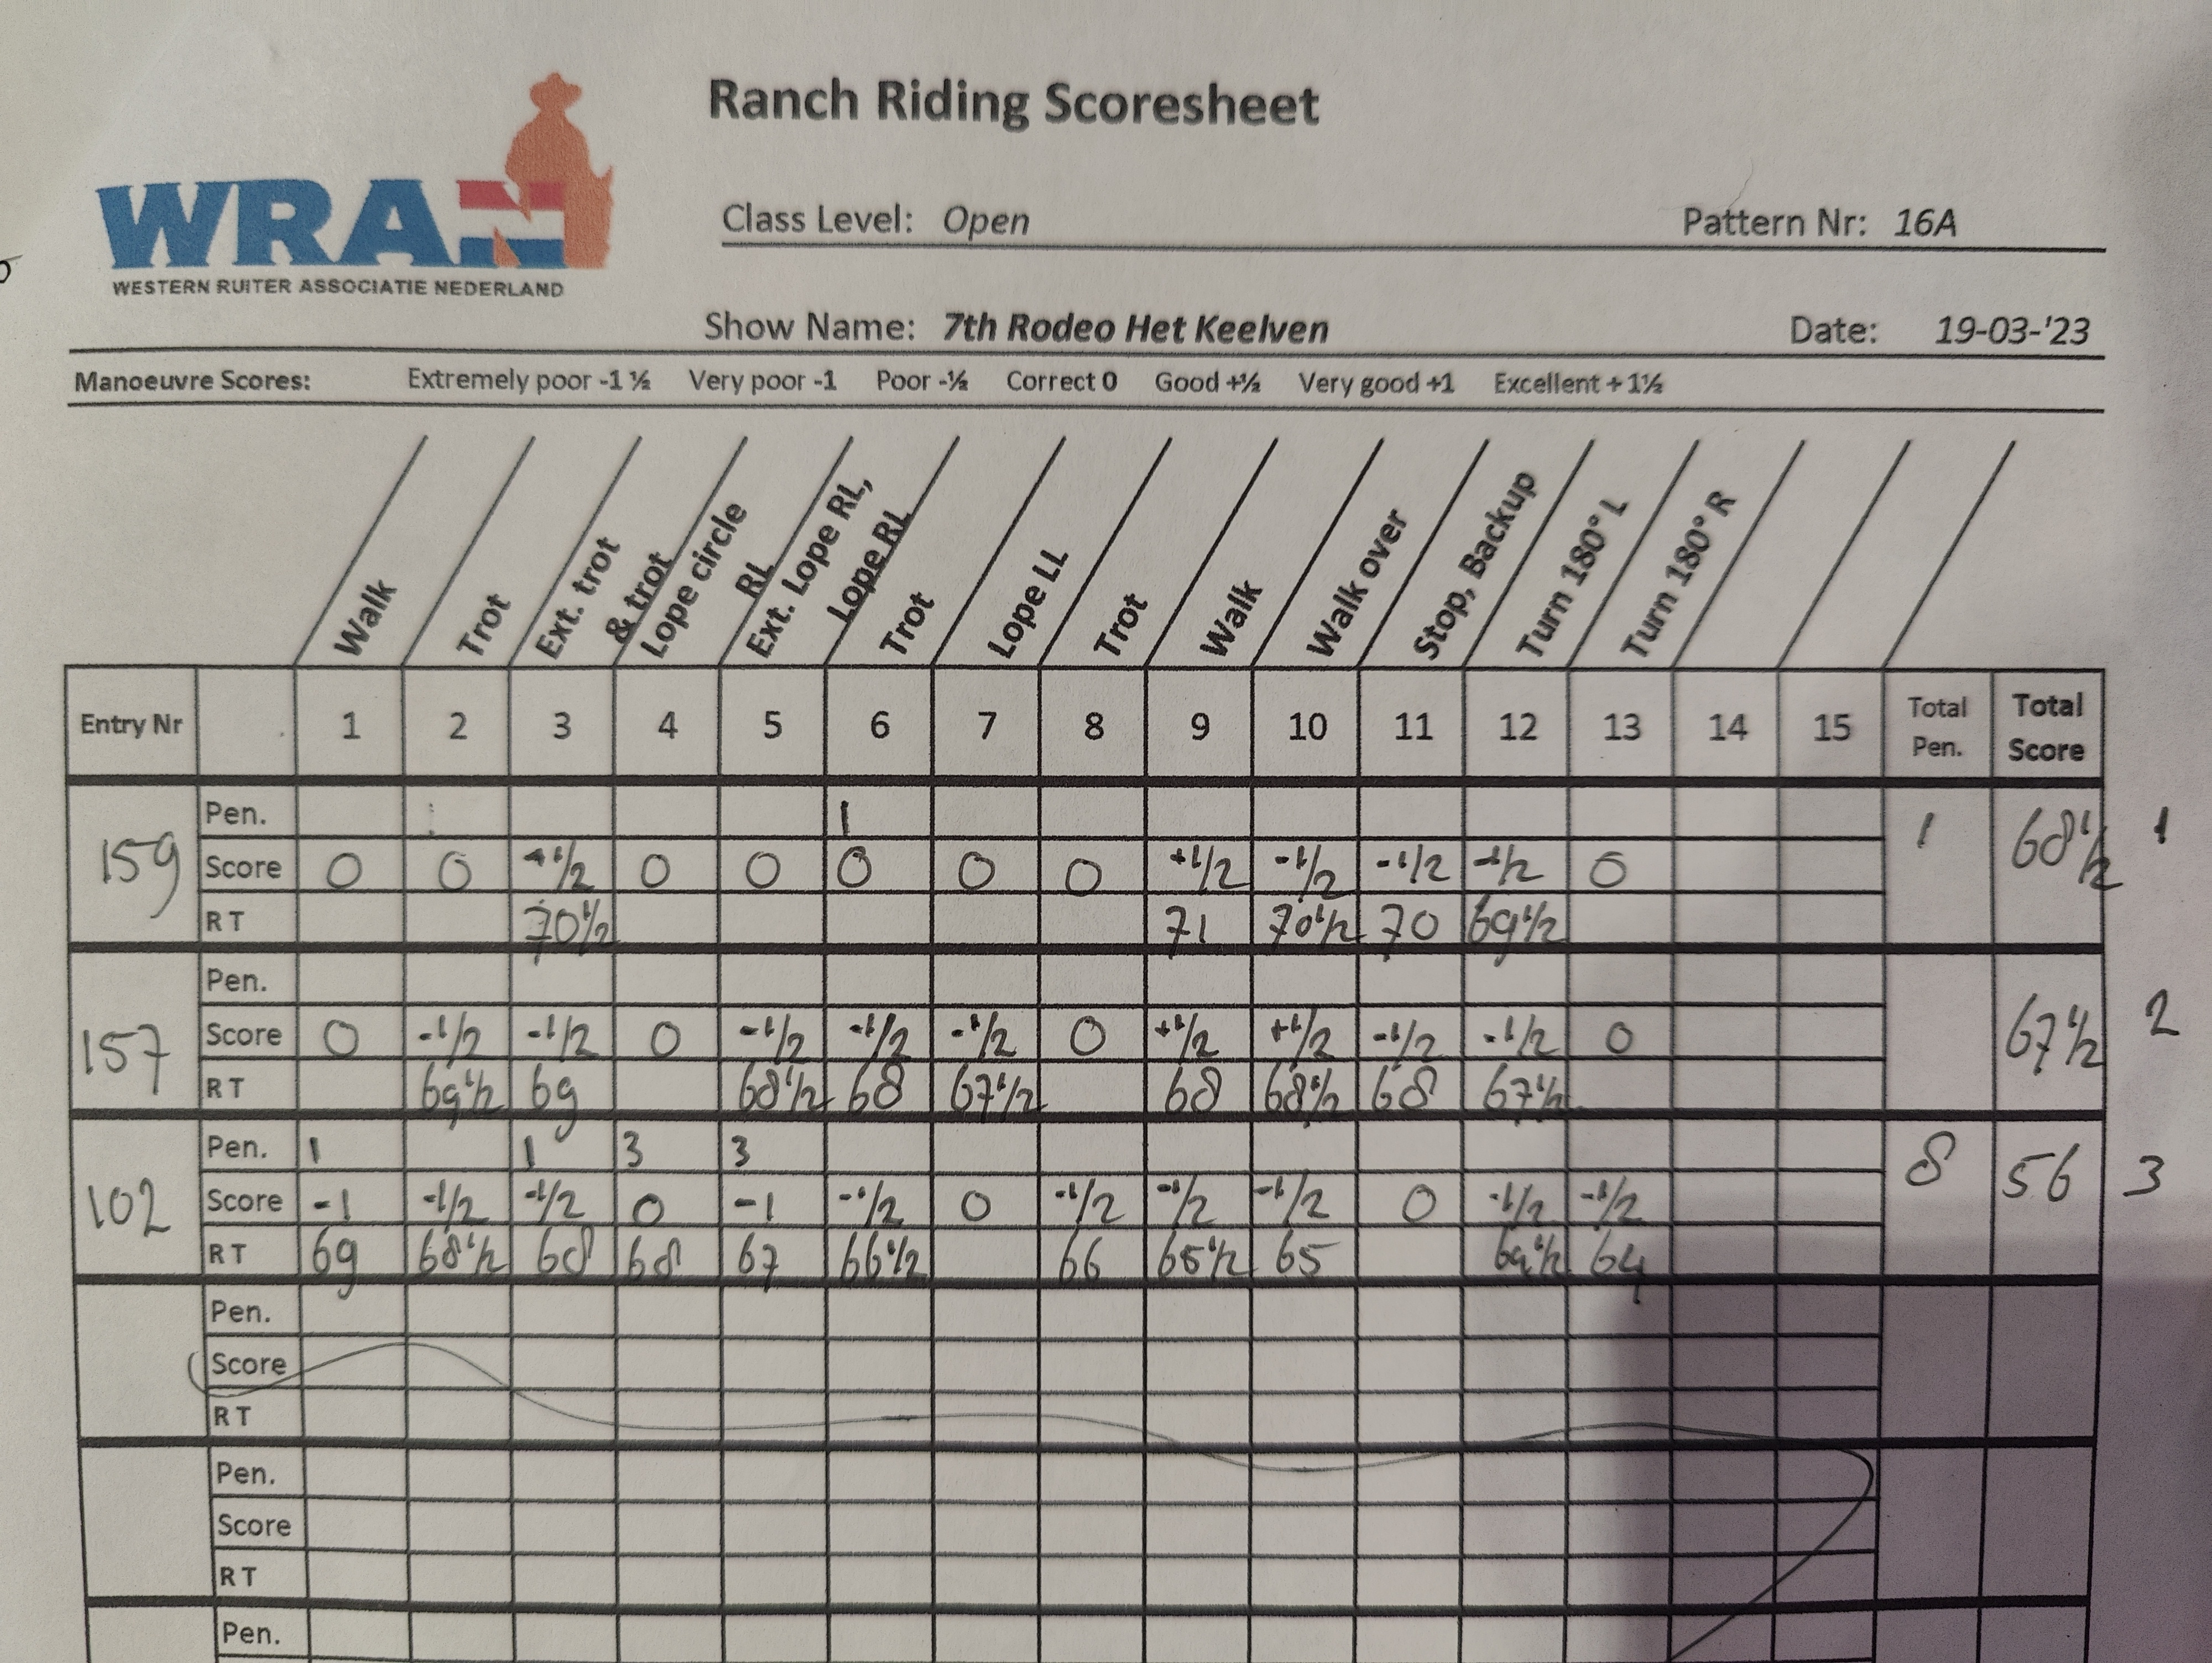 Ranch Riding Scoresheet
WRAN
WESTERN RUITER ASSOCIATIE NEDERLAND
Class Level: Open Pattern Nr: 16A
Show Name: 7th Rodeo Het Keelven Date: 19-03-'23
Manoeuvre Scores: Extremely poor -1 ½ Very poor -1 Poor -½ Correct 0 Good +½ Very good +1 Excellent + 1½
Walk
Trot
Ext. trot
& trot
Lope circle
RL
Ext. Lope RL,
Lope RL
Trot
Lope LL
Trot
Walk
Walk over
Stop, Backup
Turn 180° L
Turn 180° R
Entry Nr 1 2 3 4 5 6 7 8 9 10 11 12 13 14 15 Total Pen. Total Score
159 Pen. 1 1 68 1/2 1
Score 0 0 +1/2 0 0 0 0 0 +1/2 -1/2 -1/2 -1/2 0
R T 70 1/2 71 70 1/2 70 69 1/2
157 Pen. 67 1/2 2
Score 0 -1/2 -1/2 0 -1/2 -1/2 -1/2 0 +1/2 +1/2 -1/2 -1/2 0
R T 69 1/2 69 68 1/2 68 67 1/2 68 68 1/2 68 67 1/2
102 Pen. 1 1 3 3 8 56 3
Score -1 -1/2 -1/2 0 -1 -1/2 0 -1/2 -1/2 -1/2 0 -1/2 -1/2
R T 69 68 1/2 68 68 67 66 1/2 66 65 1/2 65 64 1/2 64
Pen.
Score
R T
Pen.
Score
R T
Pen.